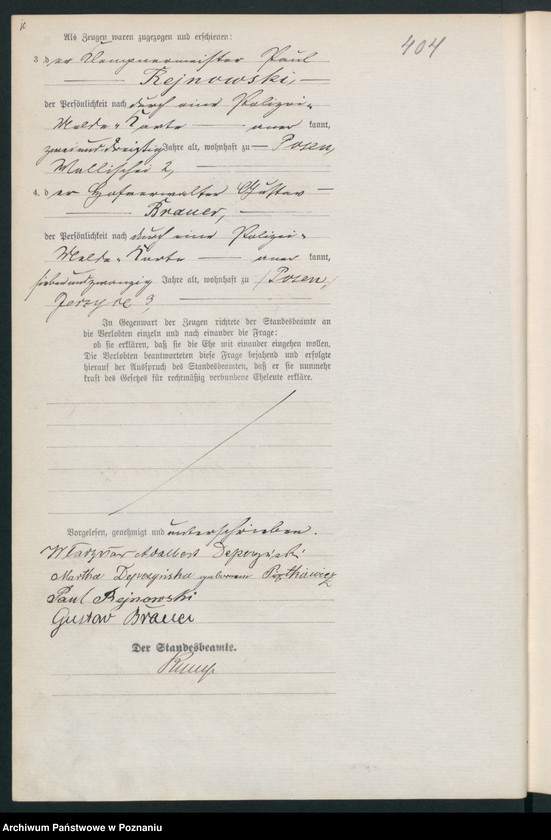 404
Als Zeugen waren zugezogen und erschienen:
3 der Klempnermeister Paul
Rejnowski,
der Persönlichkeit nach durch eine Polizei-
Melde-Karte anerkannt,
zweiunddreißig Jahre alt, wohnhaft zu Posen,
Wallischei 2,
4. der Hofverwalter Gustav
Brauer,
der Persönlichkeit nach durch eine Polizei-
Melde-Karte anerkannt,
siebenundzwanzig Jahre alt, wohnhaft zu Posen,
3,
In Gegenwart der Zeugen richtete der Standesbeamte an
die Verlobten einzeln und nach einander die Frage:
ob sie erklären, daß sie die Ehe mit einander eingehen wollen.
Die Verlobten beantworteten diese Frage bejahend und erfolgte
hierauf der Ausspruch des Standesbeamten, daß er sie nunmehr
kraft des Gesetzes für rechtmäßig verbundene Eheleute erkläre.
Vorgelesen, genehmigt und unterschrieben.
Adalbert
Martha geborene
Paul Rejnowski
Gustav Brauer
Der Standesbeamte.
Archiwum Państwowe w Poznaniu